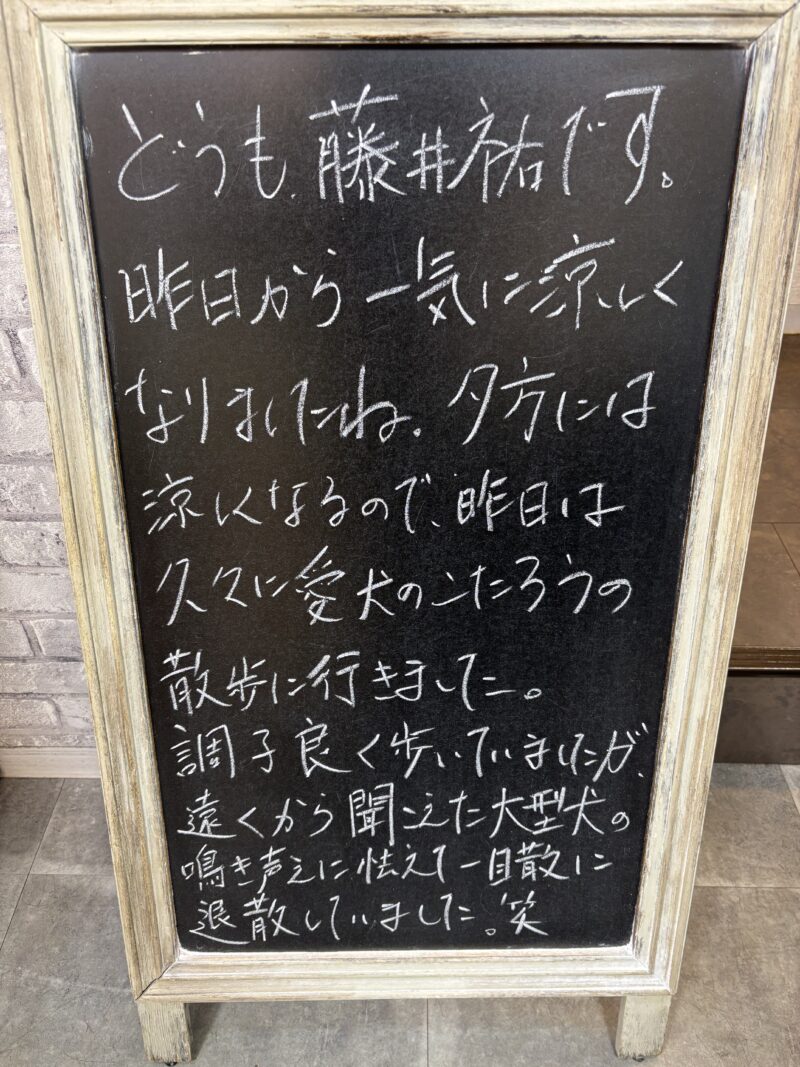 どうも、藤井祐です。
昨日から一気に涼しく
なりましたね。夕方には
涼しくなるので、昨日は
久々に愛犬のこたろうの
散歩に行きました。
調子良く歩いていましたが、
遠くから聞こえた大型犬の
鳴き声えに怯えて一目散に
退散していました。笑